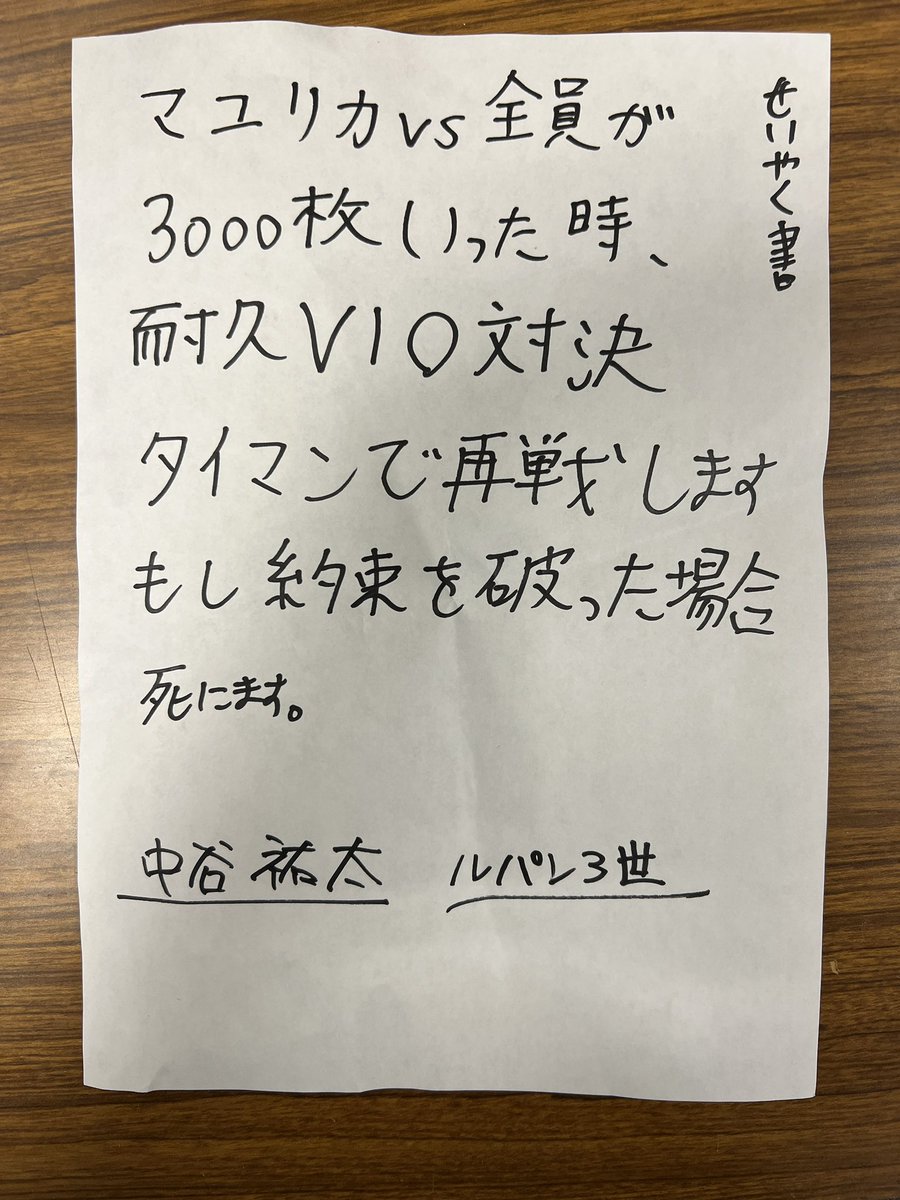 せいやく書
マユリカvs全員が
3000枚いった時、
耐久VIO対決
タイマンで再戦します
もし約束を破った場合
死にます。
中谷祐太 ルパン3世